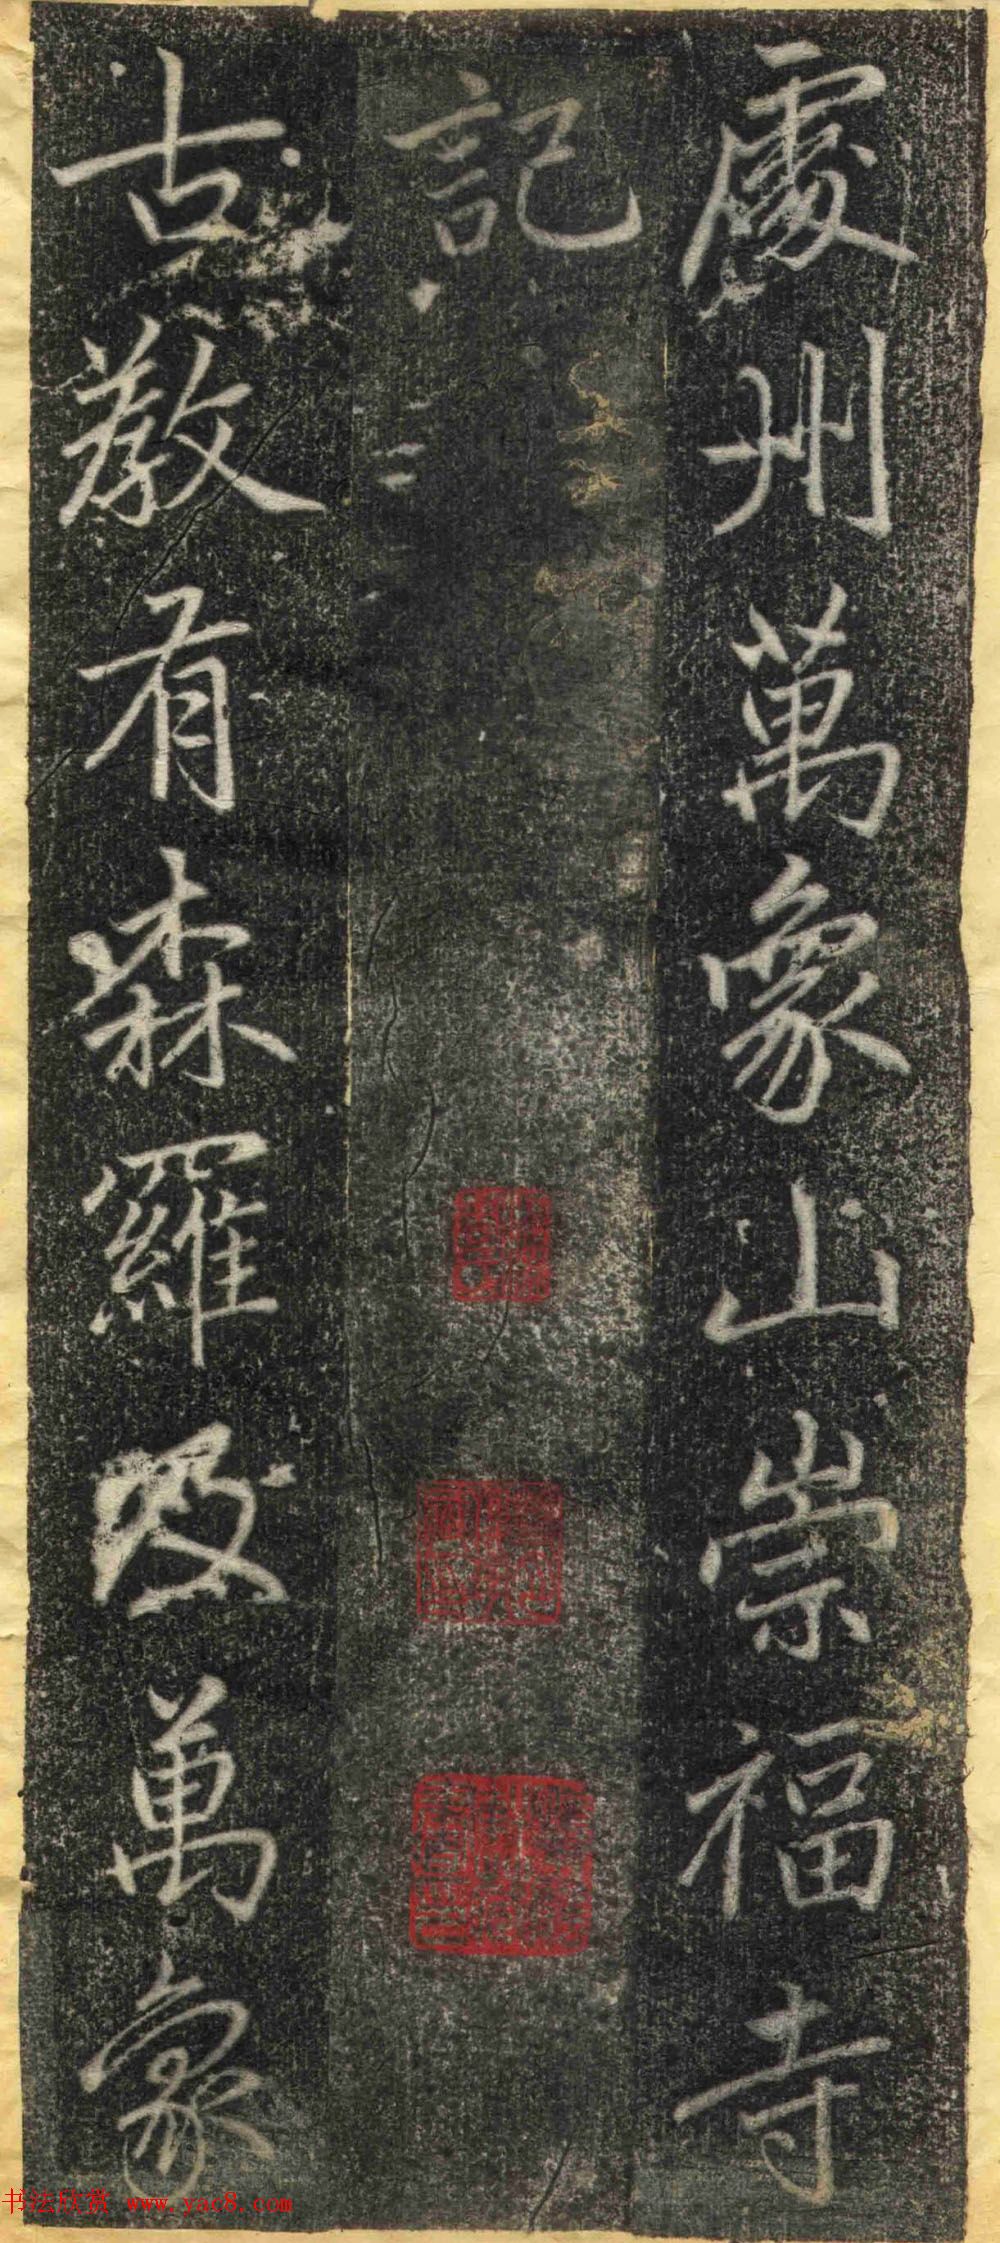 處州萬象山崇福寺
記
古教有森羅及萬象
书法欣赏 www.yac8.com